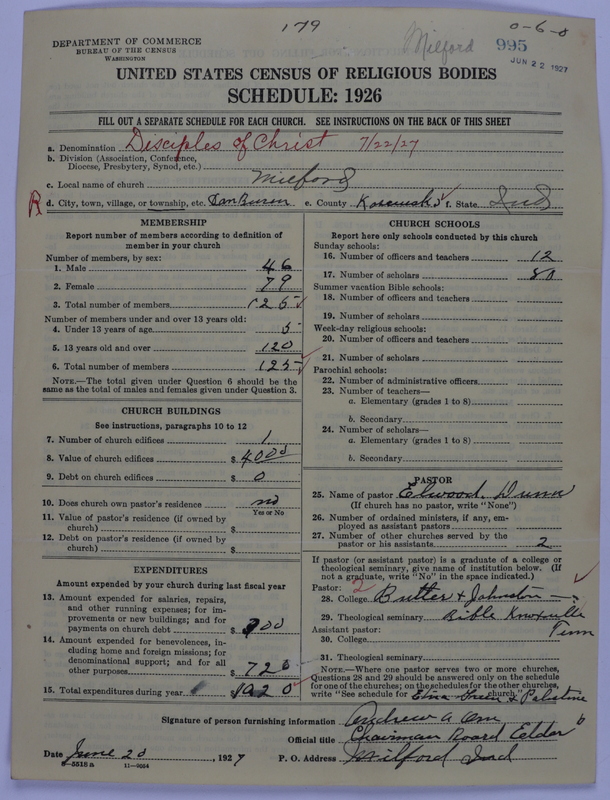 179
0-6-0
Milford
995
JUN 22 1927
DEPARTMENT OF COMMERCE
BUREAU OF THE CENSUS
WASHINGTON
UNITED STATES CENSUS OF RELIGIOUS BODIES
SCHEDULE: 1926
FILL OUT A SEPARATE SCHEDULE FOR EACH CHURCH. SEE INSTRUCTIONS ON THE BACK OF THIS SHEET
a. Denomination Disciples of Christ 7/22/27
b. Division (Association, Conference, Diocese, Presbytery, Synod, etc.)
c. Local name of church Milford
R d. City, town, village, or township, etc. Van Buren e. County Kosciusko f. State Ind
MEMBERSHIP
Report number of members according to definition of member in your church
Number of members, by sex:
1. Male 46
2. Female 79
3. Total number of members 125
Number of members under and over 13 years old:
4. Under 13 years of age 5
5. 13 years old and over 120
6. Total number of members 125
NOTE.—The total given under Question 6 should be the same as the total of males and females given under Question 3.
CHURCH BUILDINGS
See instructions, paragraphs 10 to 12
7. Number of church edifices 1
8. Value of church edifices $ 4000
9. Debt on church edifices $ 0
10. Does church own pastor's residence no
Yes or No
11. Value of pastor's residence (if owned by church) $
12. Debt on pastor's residence (if owned by church) $
EXPENDITURES
Amount expended by your church during last fiscal year
13. Amount expended for salaries, repairs, and other running expenses; for improvements or new buildings; and for payments on church debt $ 300
14. Amount expended for benevolences, including home and foreign missions; for denominational support; and for all other purposes $ 720
15. Total expenditures during year 1020
CHURCH SCHOOLS
Report here only schools conducted by this church
Sunday schools:
16. Number of officers and teachers 12
17. Number of scholars 80
Summer vacation Bible schools:
18. Number of officers and teachers
19. Number of scholars
Week-day religious schools:
20. Number of officers and teachers
21. Number of scholars
Parochial schools:
22. Number of administrative officers
23. Number of teachers—
a. Elementary (grades 1 to 8)
b. Secondary
24. Number of scholars—
a. Elementary (grades 1 to 8)
b. Secondary
PASTOR
25. Name of pastor Elwood Dunn
(If church has no pastor, write "None")
26. Number of ordained ministers, if any, employed as assistant pastors
27. Number of other churches served by the pastor or his assistants 2
If pastor (or assistant pastor) is a graduate of a college or theological seminary, give name of institution below. (If not a graduate, write "No" in the space indicated.)
Pastor: 2
28. College Butler & Johnston
29. Theological seminary Bible Knoxville
Tenn
Assistant pastor:
30. College
31. Theological seminary
NOTE.—Where one pastor serves two or more churches, Questions 28 and 29 should be answered only on the schedule for one of the churches; on the schedules for the other churches, write "See schedule for Etna Green & Palestine church."
Signature of person furnishing information Andrew A
Official title Chairman Board Eelder
Date June 20, 1927 P. O. Address Milford Ind
8-5518a 11-9024